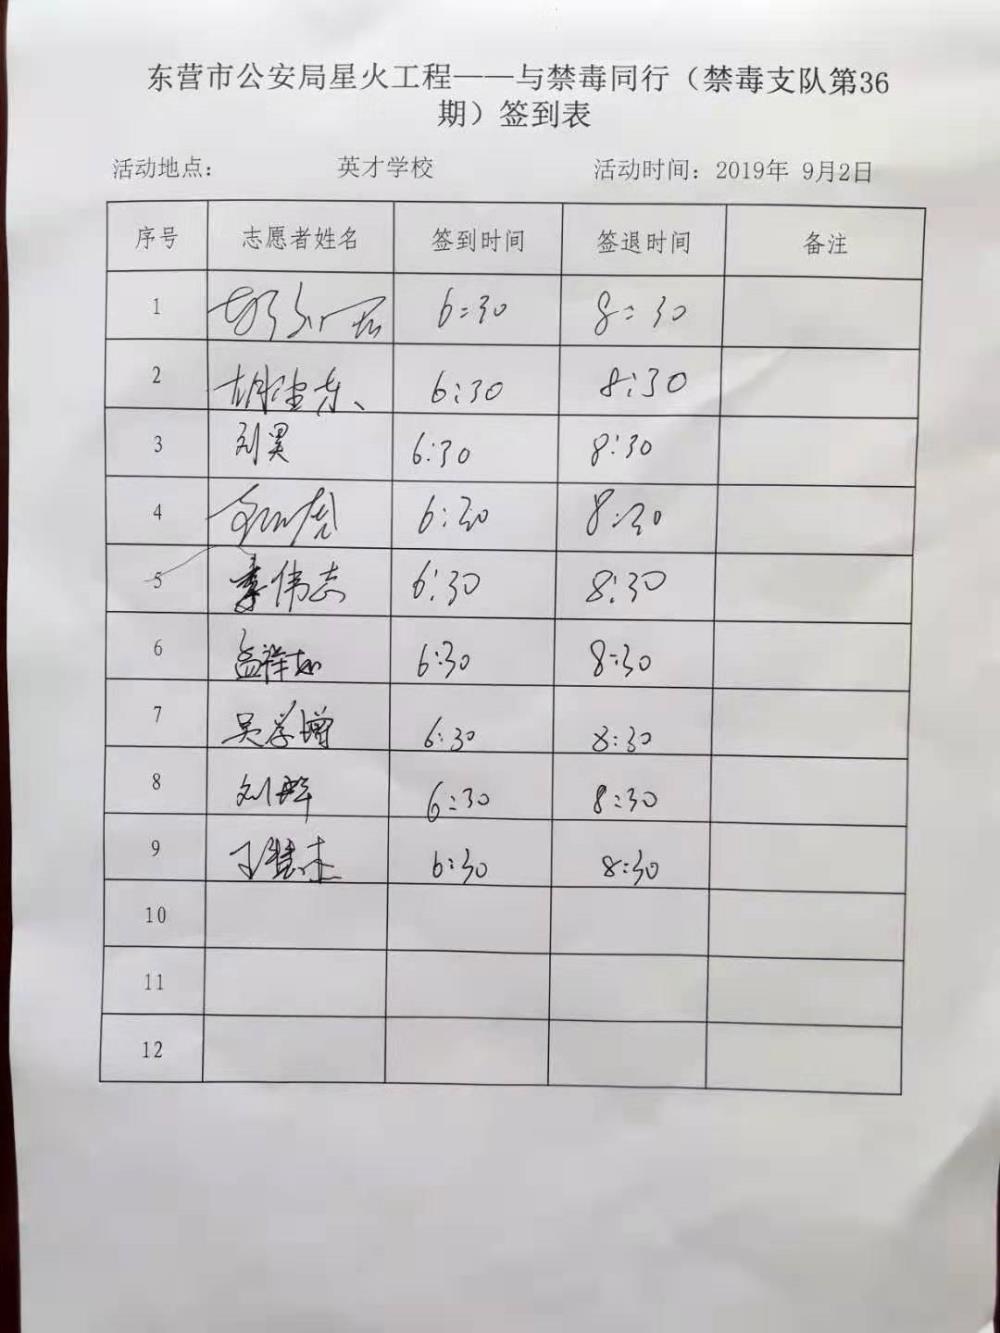 东营市公安局星火工程——与禁毒同行（禁毒支队第36
期）签到表
活动地点： 英才学校 活动时间：2019年 9月2日
序号 志愿者姓名 签到时间 签退时间 备注
1 6:30 8:30
2 6:30 8:30
3 刘昊 6:30 8:30
4 6:30 8:30
5 李伟志 6:30 8:30
6 6:30 8:30
7 吴学增 6:30 8:30
8 刘 6:30 8:30
9 王慧杰 6:30 8:30
10
11
12